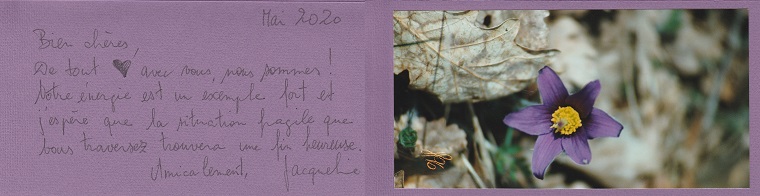 Mai 2020
Bien chères,
De tout ♥ avec vous, nous sommes !
Votre energie est un exemple fort et
j'espère que la situation fragile que
vous traversez trouvera une fin heureuse.
Amicalement, Jacqueline